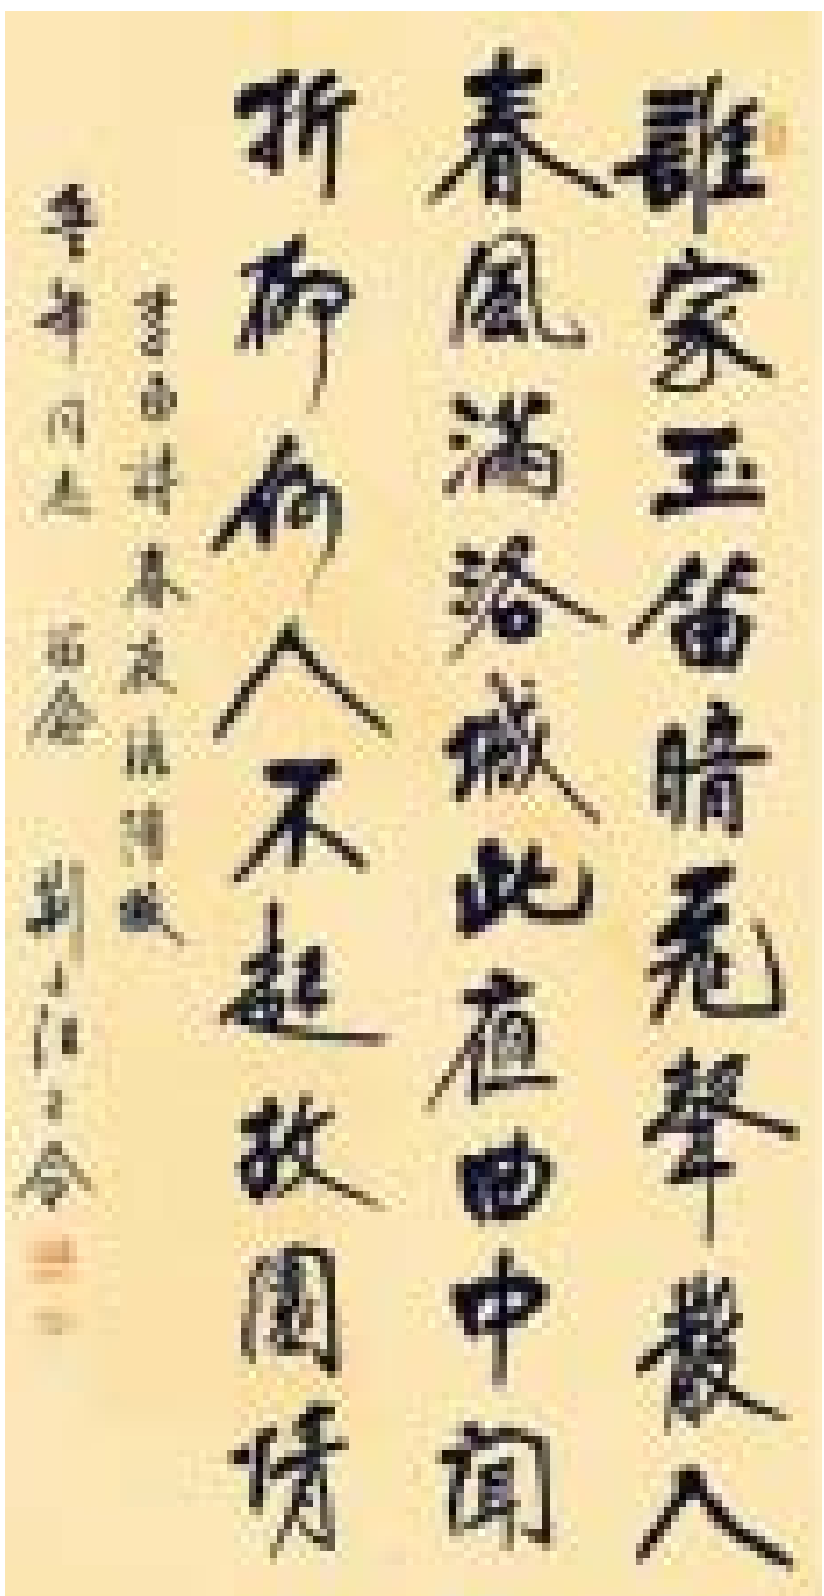 誰家玉笛暗飛聲散入
春風滿洛城此夜曲中聞
折柳何人不起故園情
李白詩春夜洛陽城
年同志 留念 劉